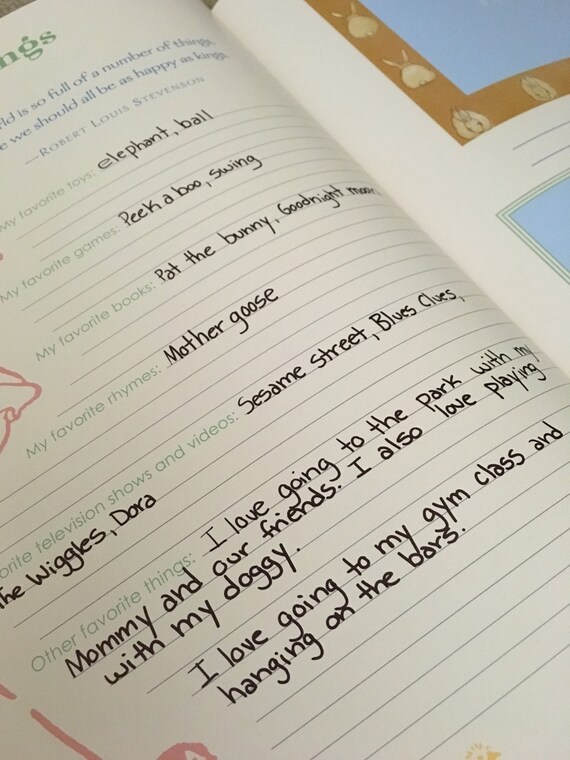 ngs
rld is so full of a number of things,
e we should all be as happy as kings.
—Robert Louis Stevenson
My favorite toys: elephant, ball
My favorite games: Peek a boo, swing
My favorite books: Pat the bunny, Goodnight moon
My favorite rhymes: Mother goose
orite television shows and videos: Sesame Street, Blues Clues,
The Wiggles, Dora
Other favorite things: I love going to the park with my
Mommy and our friends. I also love playing
with my doggy.
I love going to my gym class and
hanging on the bars.